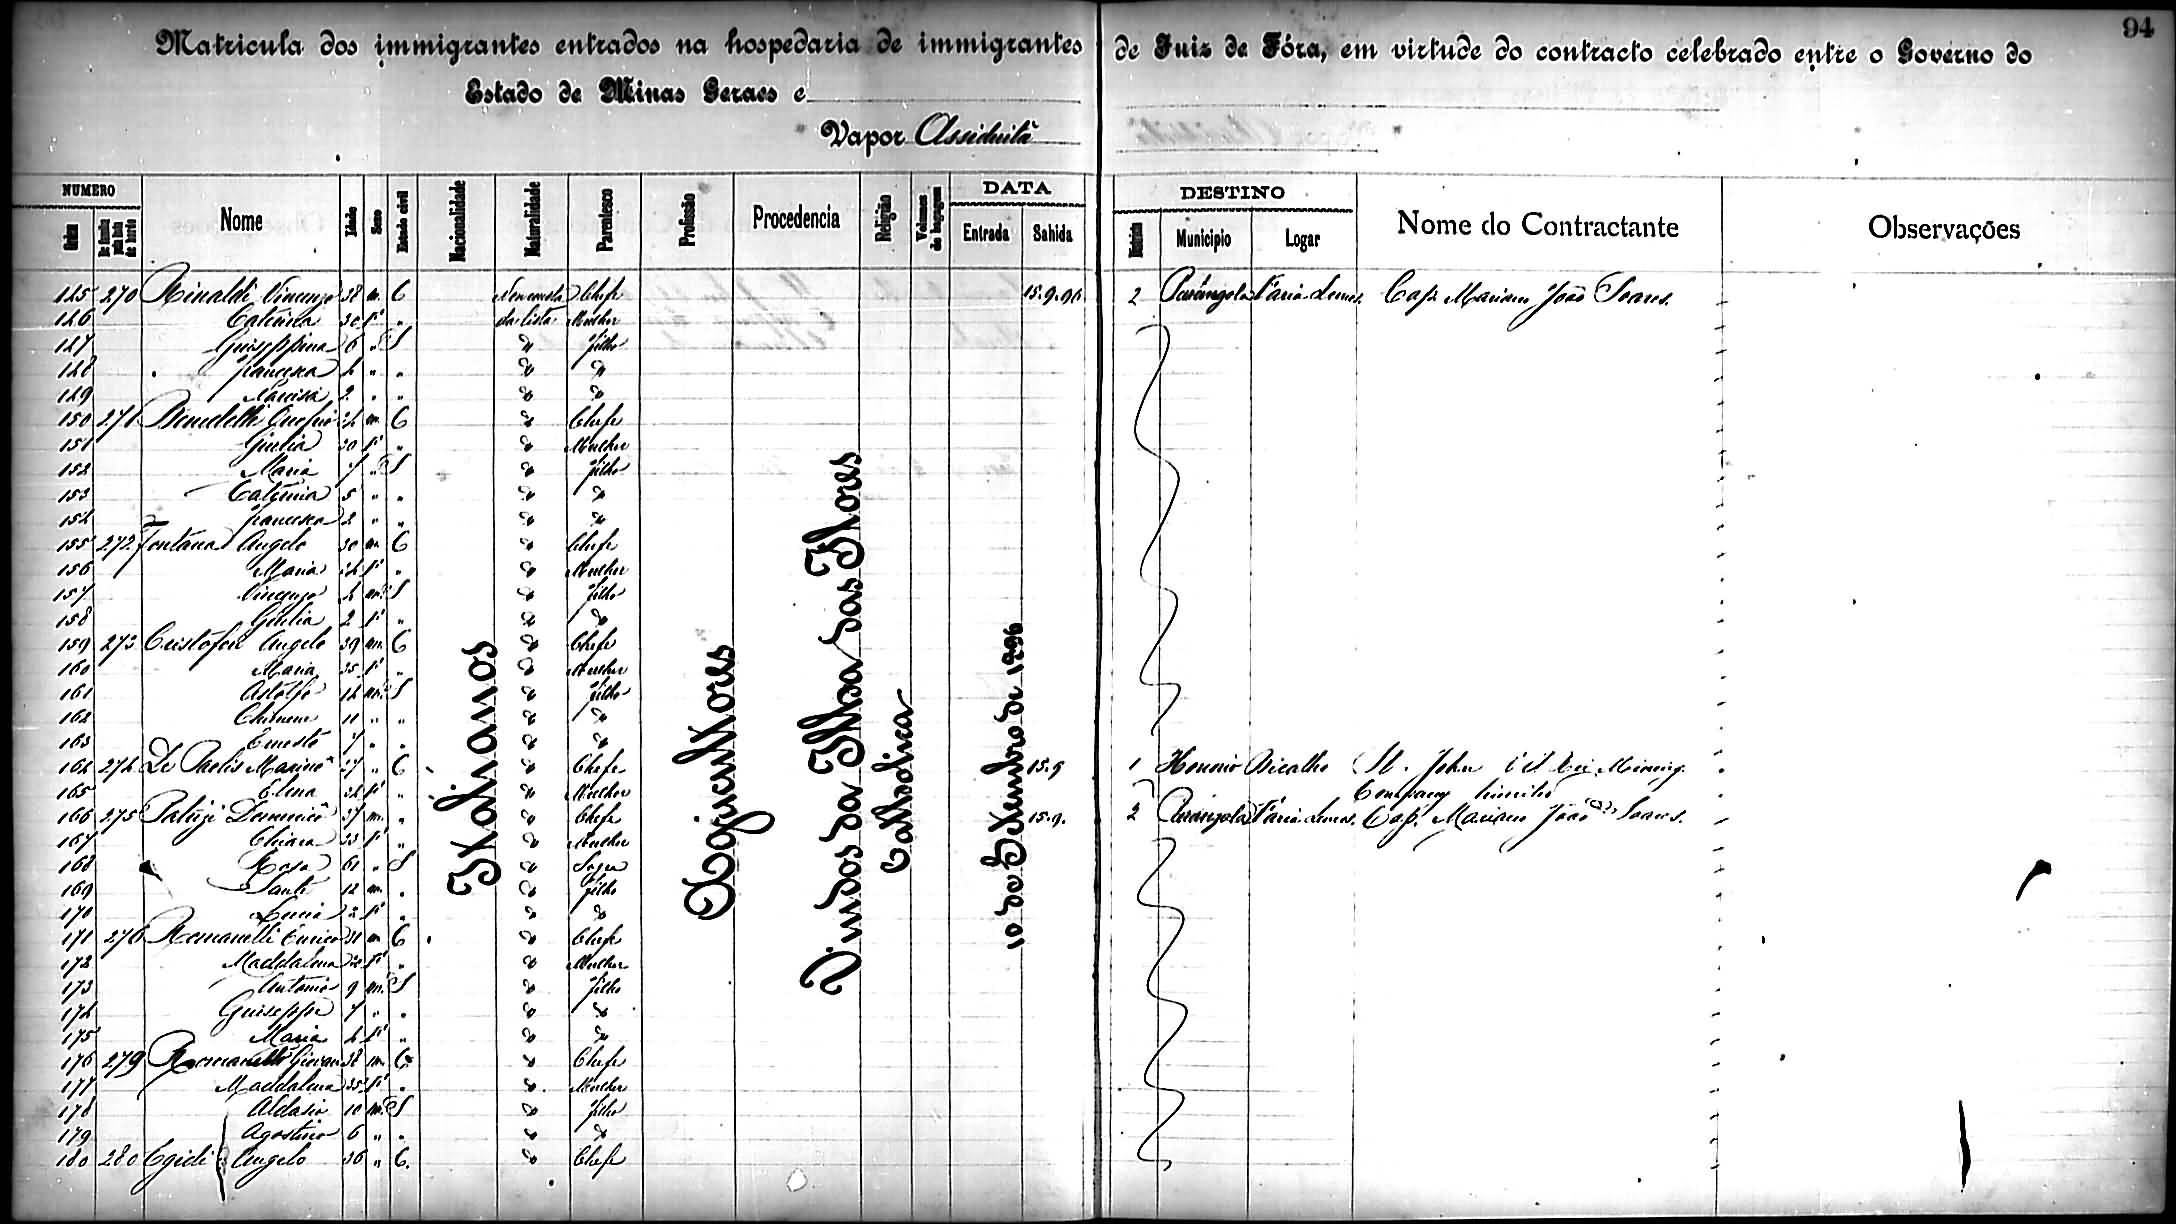 94
Matricula dos immigrantes entrados na hospedaria de immigrantes de Juiz de Fóra, em virtude do contracto celebrado entre o Governo do
Estado de Minas Geraes e
Vapor Assiduità
NUMERO Nome Idade Sexo Estado civil Nacionalidade Naturalidade Parentesco Profissão Procedencia Religião Volumes de bagagem DATA DESTINO Nome do Contractante Observações
Ordem De familia pela lista de bordo Entrada Sahida Districto Municipio Logar
145 270 Rinaldi Vincenzo 38 m. C Não consta Chefe 15.9.96 2 Carangola Faria Lemos. Cap. Mariano João Soares.
146 Caterina 30 f " da lista Mulher
147 Giuseppina 6 " S " filho
148 Francesca 4 " " " "
149 Narcisa 2 " " " "
150 271 Benedetti 34 m C " Chefe
151 Giulia 30 f " " Mulher
152 Maria 7 " S " filho
153 Caterina 5 " " " "
154 Francesca 2 " " " "
155 272 Fontana Angelo 30 m. C " Chefe
156 Maria 24 f " " Mulher
157 Vincenzo 4 m. S " filho
158 Giulia 2 f " " "
159 273 Cristofori Angelo 39 m. C " Chefe
160 Maria 35 f " " Mulher
161 Astolfo 14 m. S " filho
162 11 " " " "
163 Ernesto 7 " " " "
164 274 De Paolis Marino 37 " C " Chefe 15.9 1 Honorio Bicalho St. John d'El Rei Mining
165 Elena 34 f " " Mulher Company Limited
166 275 Patrizi Domenico 37 m. " " Chefe 15.9. 2 Carangola Faria Lemos. Cap. Mariano João Soares.
167 Chiara 33 f " " Mulher
168 Rosa 61 " S " Sogra
169 Sante 12 m. " " filho
170 Lucia 2 f " " "
171 276 Romanelli Enrico 31 m C " Chefe
172 Maddalena 32 f " " Mulher
173 Antonio 9 m. S " filho
174 Giuseppe 7 " " " "
175 Maria 4 f " " "
176 279 Romanelli Giovan 38 m. C " Chefe
177 Maddalena 35 f " " Mulher
178 Aldasio 10 m. S " filho
179 Agostino 6 " " " "
180 280 Egidi Angelo 36 " C. " Chefe
Italianos
Agricultores
Vindos da Ilha das Flores
Catholica
10 de Setembro de 1896